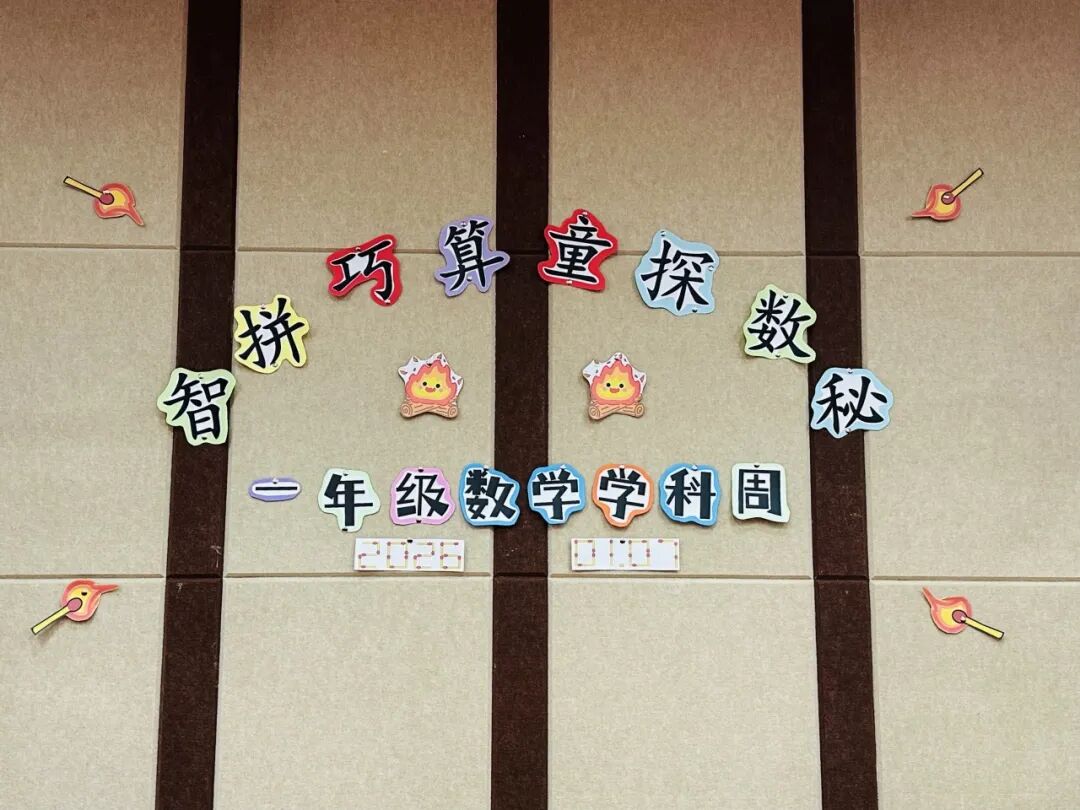 智拼巧算童探数秘
一年级数学学科周
2026